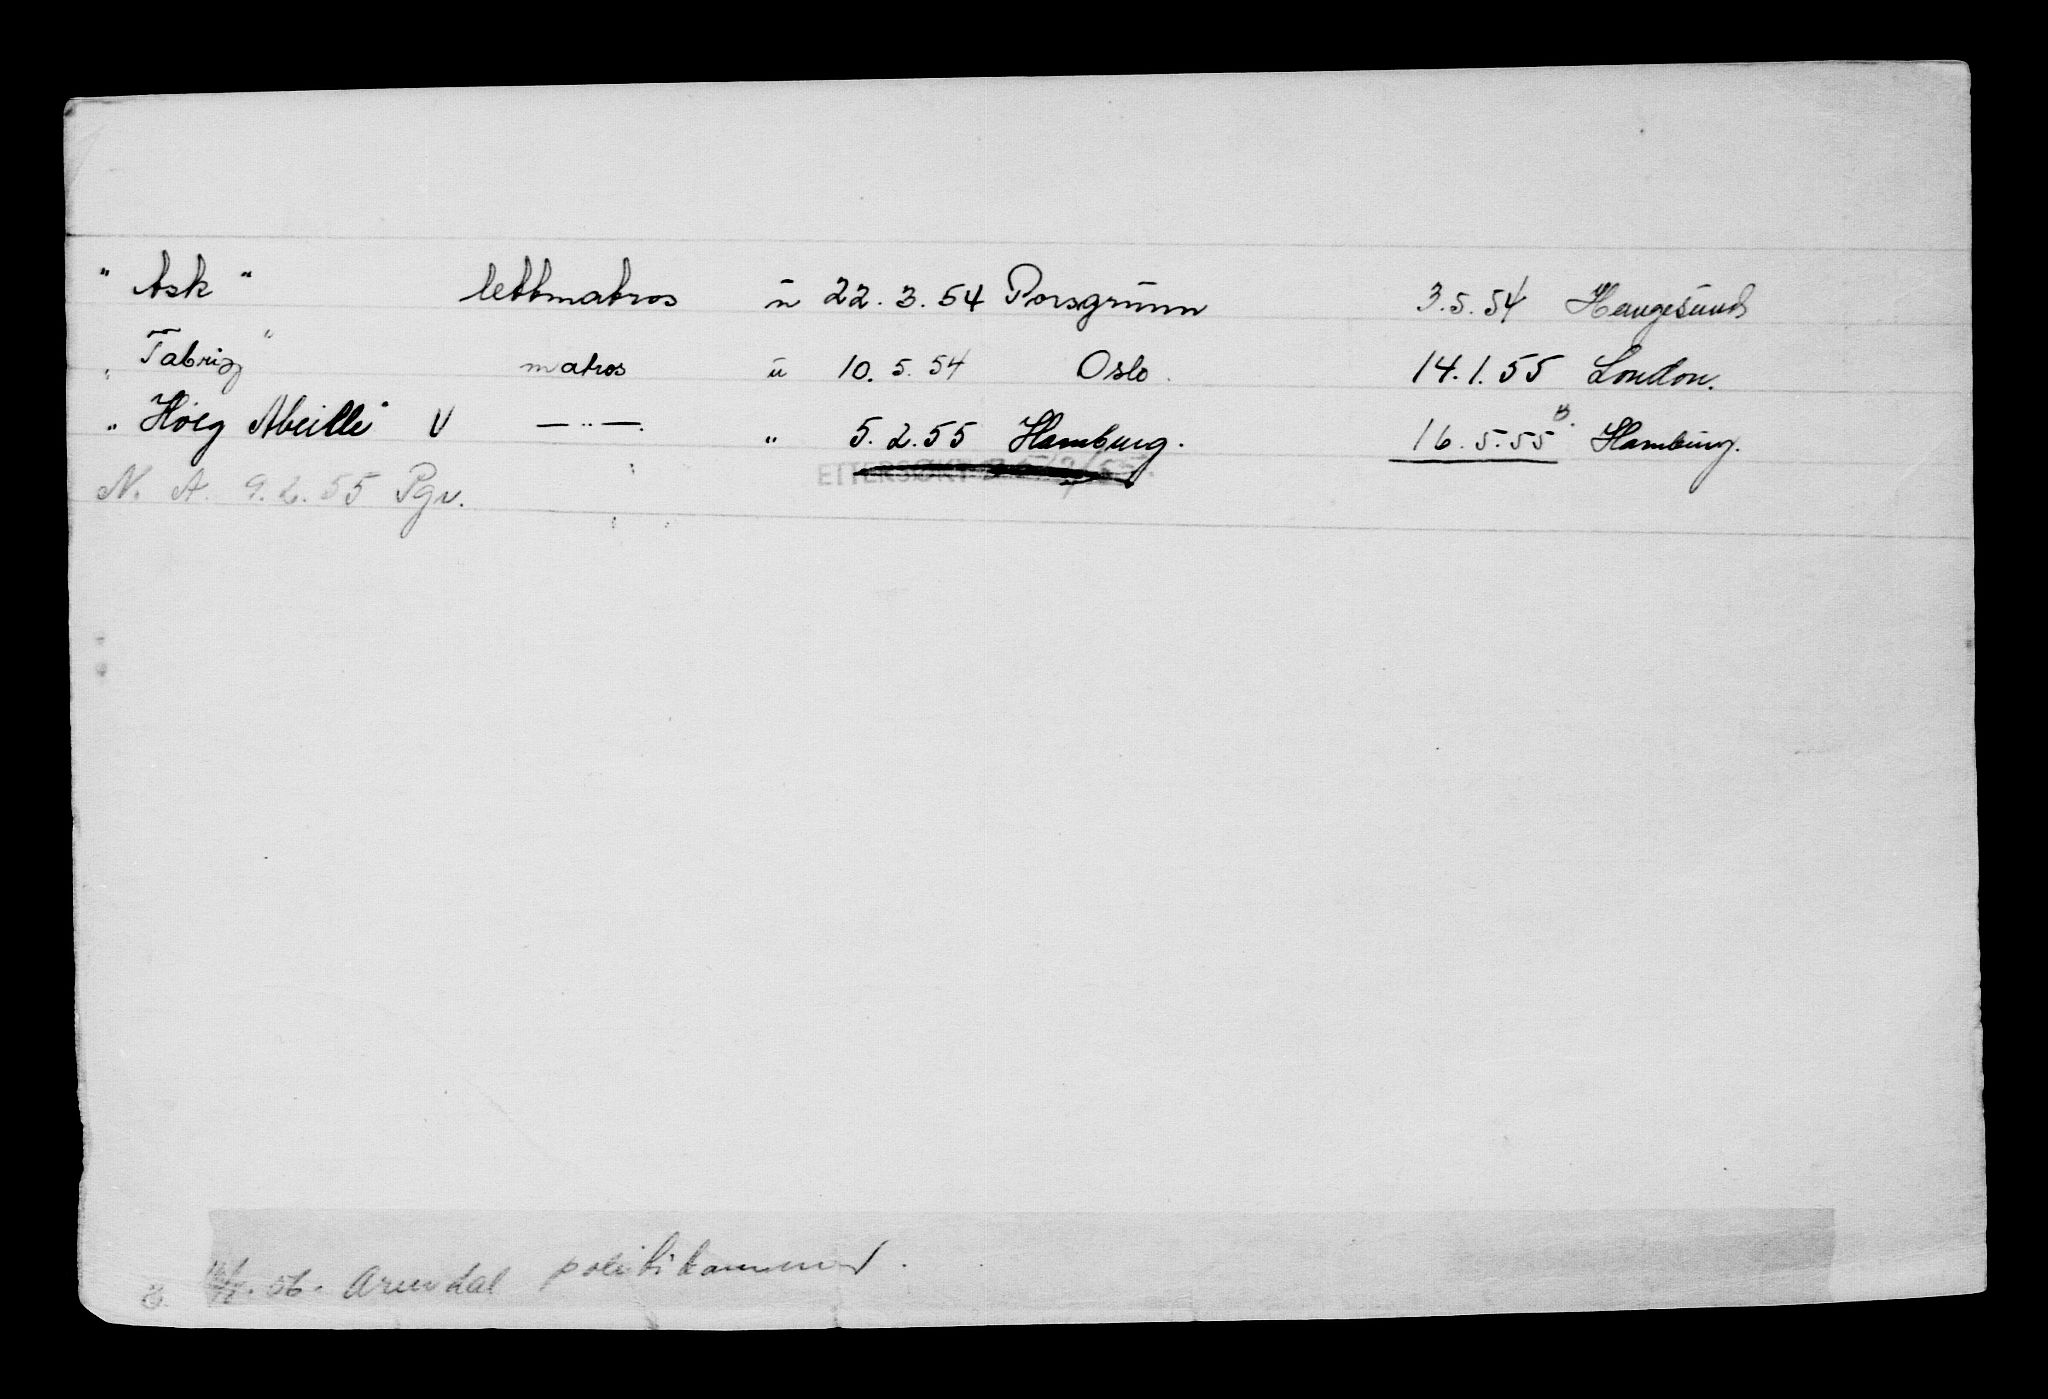 "Ask" lettmatros u 22.3.54 Porsgrunn 3.5.54 Haugesund
"Tabriz" matros u 10.5.54 Oslo. 14.1.55 London.
"Höeg Abeille" V —"— " 5.2.55 Hamburg. 16.5.55 B. Hamburg.
ETTERSØKT
N. A. 9.2.55 Pgv.
56. Arendal politikammer.